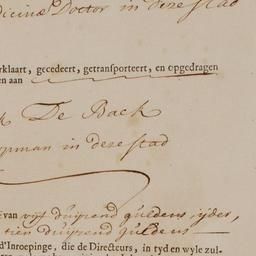 dicinæ Doctor in deze stad
rklaart, gecedeert, getransporteert, en opgedragen
en aan
k De Back
opman in deze stad
van vyf duijzend guldens, ijder,
tien duijzend guldens
d'Inroepinge, die de Directeurs, in tyd en wyle zul-